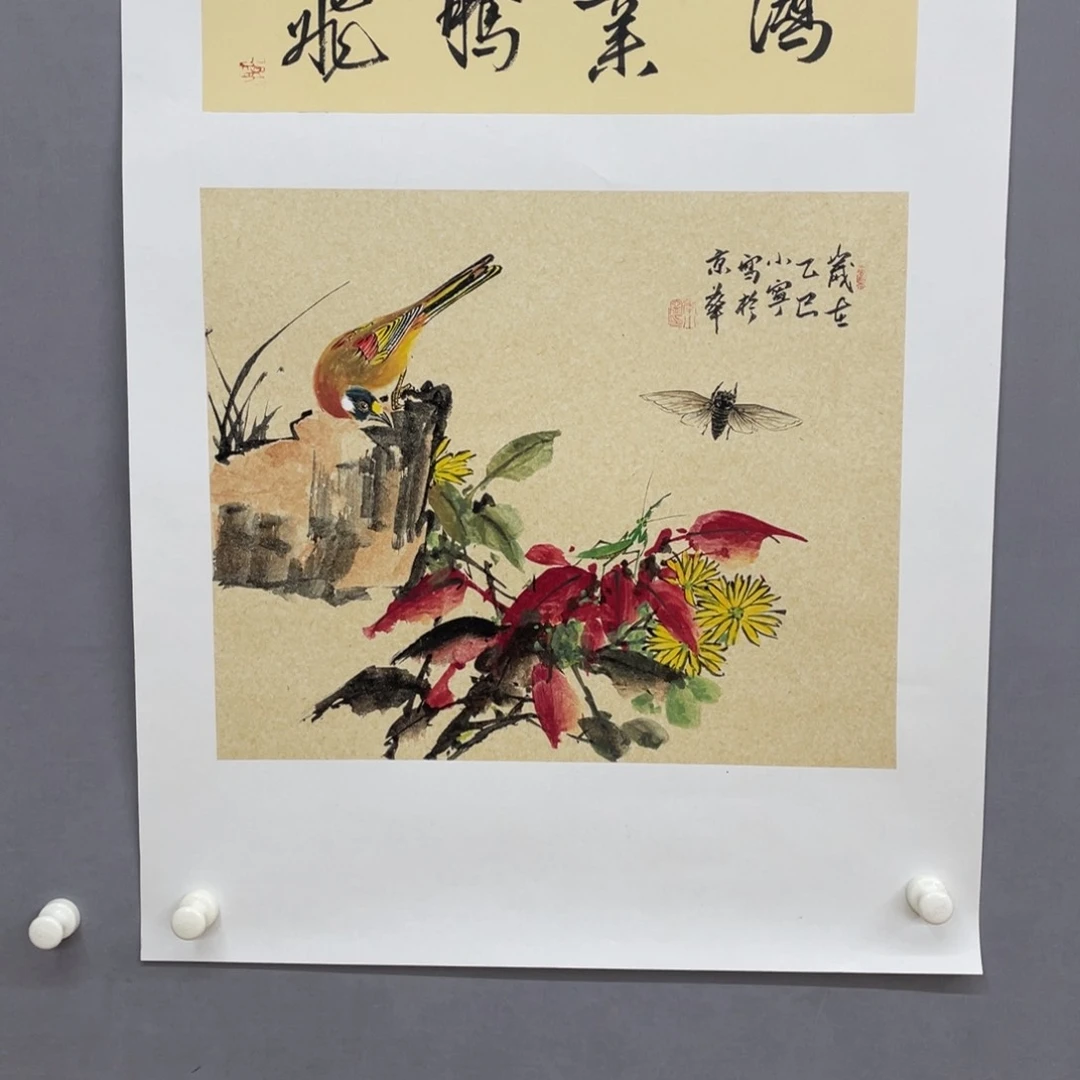 鴻業騰飛
歲在
乙巳
小寧
寫於
京華